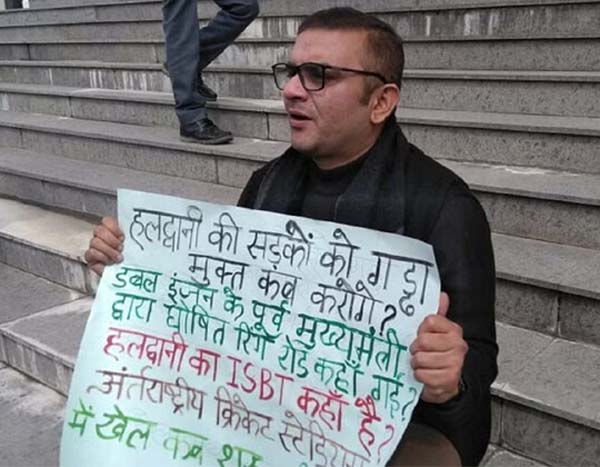 हलद्वानी की सड़कों को गड्ढा
मुक्त कब करोगे?
डबल इंजन के पूर्व मुख्यमंत्री
द्वारा घोषित रिंग रोड कहाँ गई?
हलद्वानी का ISBT कहाँ है?
अंर्तराष्ट्रीय क्रिकेट स्टेडियम
में खेल कब